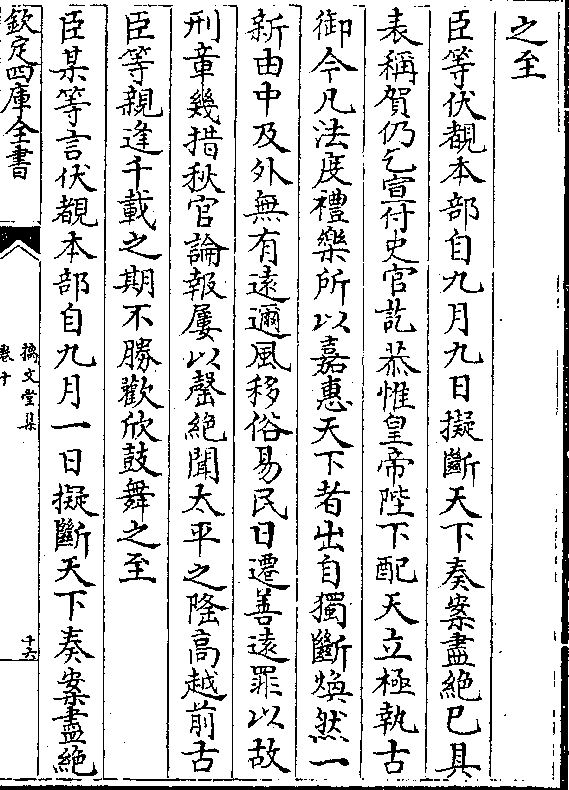 之至
臣等伏覩本部自九月九日擬斷天下奏案盡絶已具
表稱賀仍乞宣付史官訖恭惟皇帝陛下配天立極執古
御今凡法度禮樂所以嘉惠天下者出自獨斷煥然一
新由中及外無有遠邇風移俗易民日遷善遠罪以故
刑章幾措秋官論報屢以罄絶聞太平之隆高越前古
臣等親逢千載之期不勝歡欣鼓舞之至
臣某等言伏覩本部自九月一日擬斷天下奏案盡絶
欽定四庫全書
摛文堂集
卷十
十六